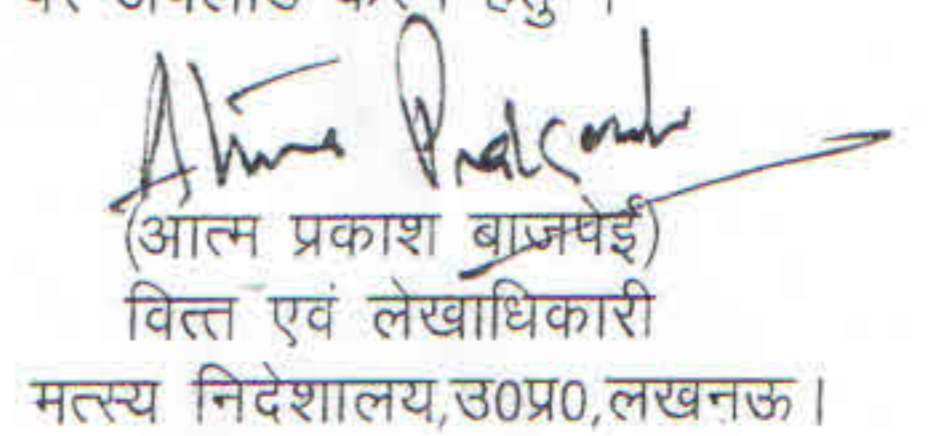 पर अपलोड करने हेतु ।
Atma Prakash
(आत्म प्रकाश बाजपेई)
वित्त एवं लेखाधिकारी
मत्स्य निदेशालय,उ0प्र0,लखनऊ।